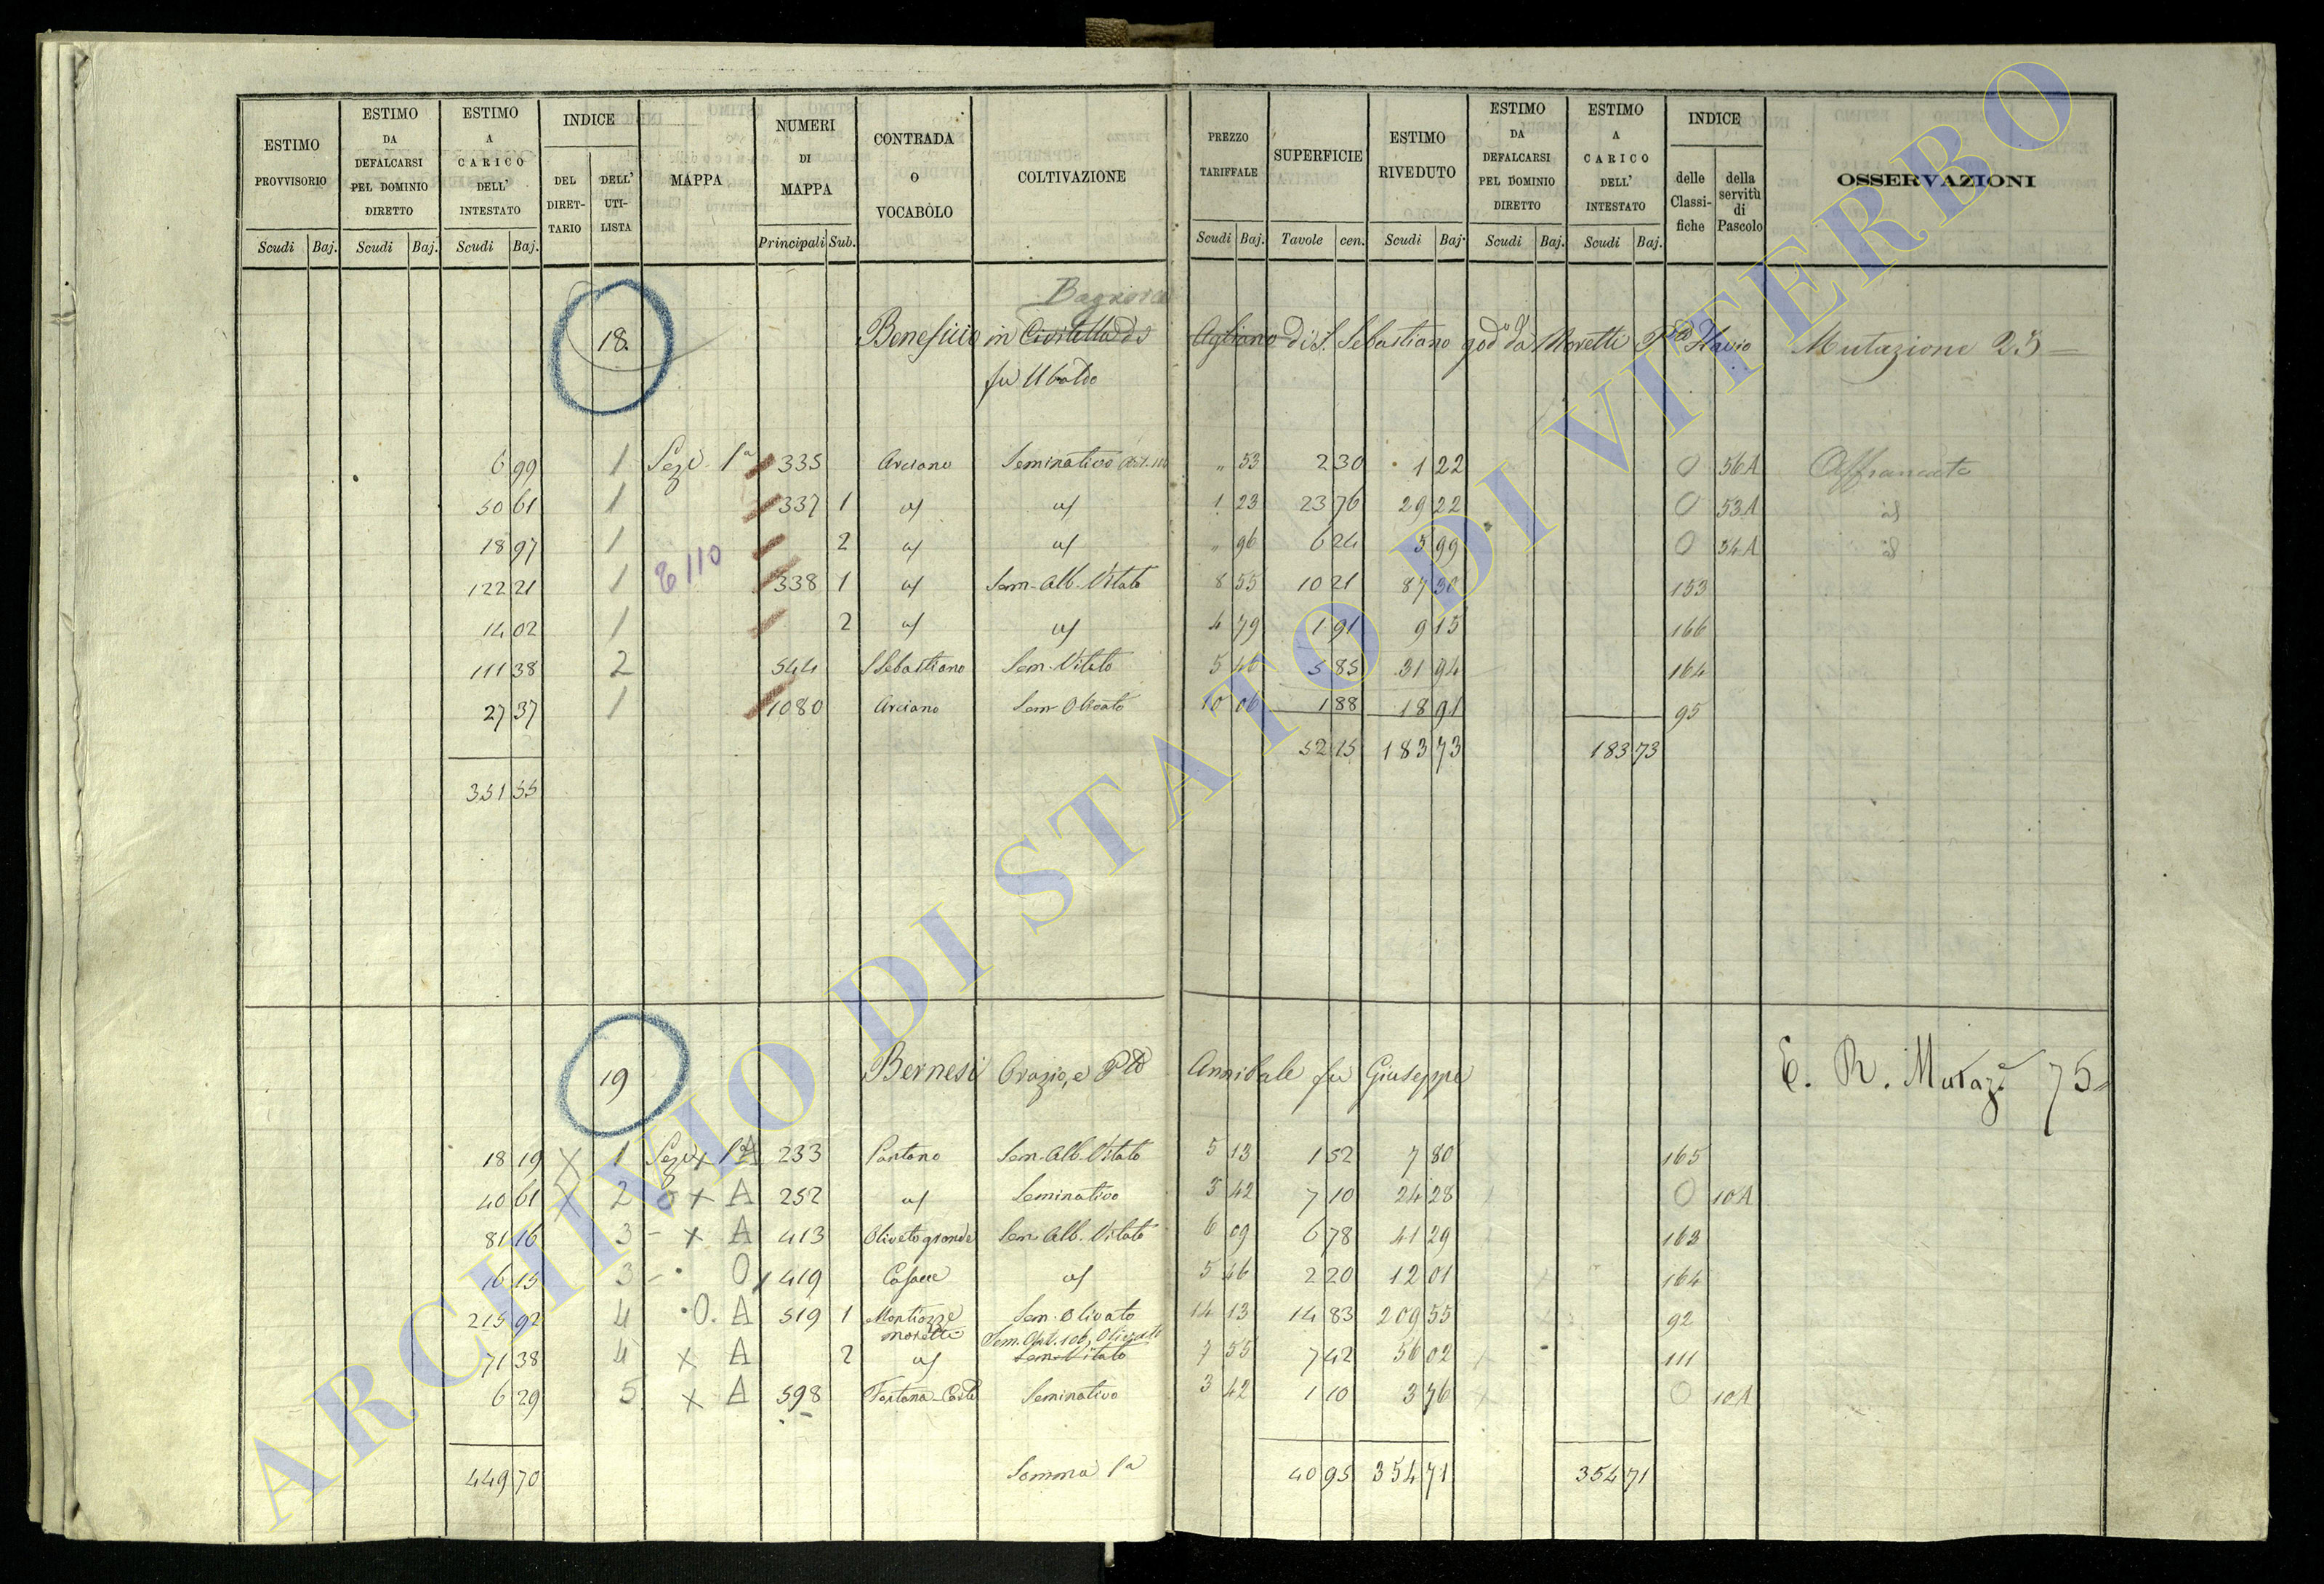 ESTIMO PROVVISORIO | ESTIMO DA DEFALCARSI PEL DOMINIO DIRETTO | ESTIMO A CARICO DELL' INTESTATO | INDICE | MAPPA | NUMERI DI MAPPA | CONTRADA O VOCABÒLO | COLTIVAZIONE | PREZZO TARIFFALE | SUPERFICIE | ESTIMO RIVEDUTO | ESTIMO DA DEFALCARSI PEL DOMINIO DIRETTO | ESTIMO A CARICO DELL' INTESTATO | INDICE | OSSERVAZIONI
DEL DIRETTARIO | DELL' UTILISTA | delle Classifiche | della servitù di Pascolo
Scudi | Baj. | Scudi | Baj. | Scudi | Baj. | Principali | Sub. | Scudi | Baj. | Tavole | cen. | Scudi | Baj. | Scudi | Baj. | Scudi | Baj.
Bagnorea
18. Beneficio in Civitella d' Agliano di S. Sebastiano god° da Moretti Flavio Mutazione 25
fu Ubaldo
6 99 1 Sez. 1a 335 Arciano Seminativo " 53 2 30 1 22 0 56A Affrancato
50 61 1 337 1 1 23 23 76 29 22 0 53A
18 97 1 2 " 96 6 24 5 99 0 54A
6110
122 21 1 338 1 Sem. Alb. Vitato 8 55 10 21 87 30 153
14 02 1 2 4 79 1 91 9 15 166
111 38 2 544 S Sebastiano Sem. Vitato 5 46 5 85 31 94 164
27 37 1 1080 Arciano Sem Olivato 10 06 1 88 18 91 95
52 15 183 73 183 73
351 55
19 Bernesi Orazio, e Annibale fu Giuseppe E. R. Mutaz. 75
18 19 X 1 Sez. 1a A 233 Pantano Sem. Alb. Vitato 5 13 1 52 7 80 165
40 61 X 2 x A 252 Seminativo 3 42 7 10 24 28 0 10A
81 16 3 - x A 413 Oliveto grande Sem Alb. Vitato 6 09 6 78 41 29 163
16 15 3 - O 419 5 46 2 20 12 01 164
215 92 4 O. A 519 1 Sem. Olivato 14 13 14 83 209 55 92
71 38 4 x A 2 Sem. Vitato 7 55 7 42 56 02 111
6 29 5 x A 598 Seminativo 3 42 1 10 3 76 0 10A
449 70 Somma 1a 40 95 354 71 354 71
ARCHIVIO DI STATO DI VITERBO